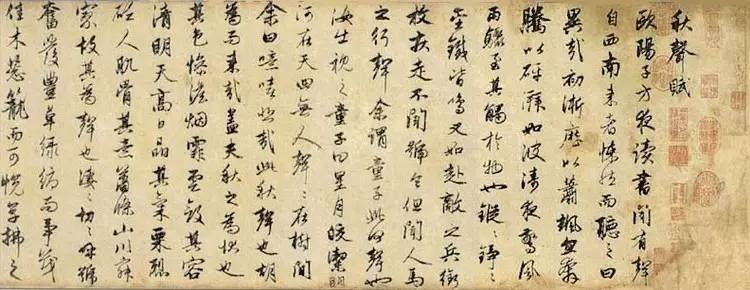 秋聲賦
歐陽子方夜讀書聞有聲
自西南来者悚然而聽之曰
異哉初淅瀝以蕭颯忽奔
騰以砰湃如波濤夜驚風
雨驟至其觸於物也鏦〻錚〻
金鐵皆鳴又如赴敵之兵銜
枚疾走不聞號令但聞人馬
之行聲余謂童子此何聲也
汝出視之童子曰星月皎潔明
河在天四無人聲〻在樹間
余曰噫嘻悲哉此秋聲也胡
為而来哉蓋夫秋之為狀也
其色慘淡烟霏雲斂其容
清明天高日晶其氣栗烈
砭人肌骨其意蕭條山川寂
寥故其為聲也淒〻切〻呼號
奮發豐草綠縟而爭茂
佳木葱籠而可悅草拂之